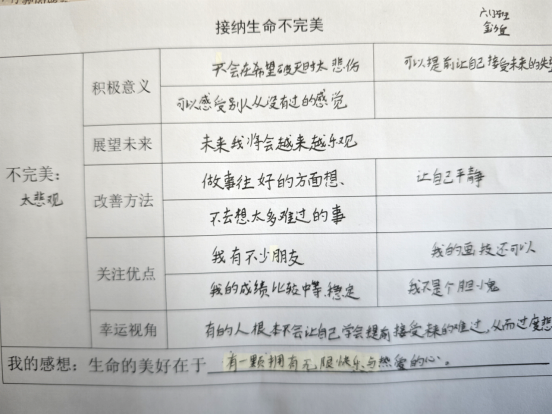 接纳生命不完美
不完美：
太悲观
积极意义
不会在希望破灭时太悲伤
可以提前让自己接受未来的失
可以感受别人从没有过的感觉
展望未来
未来我将会越来越乐观
改善方法
做事往好的方面想、
让自己平静
不去想太多难过的事
关注优点
我有不少朋友
我的画技还可以
我的成绩比较中等、稳定
我不是个胆小鬼
幸运视角
有的人根本不会让自己学会提前接受未来的难过，从而过度想
我的感想：生命的美好在于 有一颗拥有无限快乐与热爱的心。